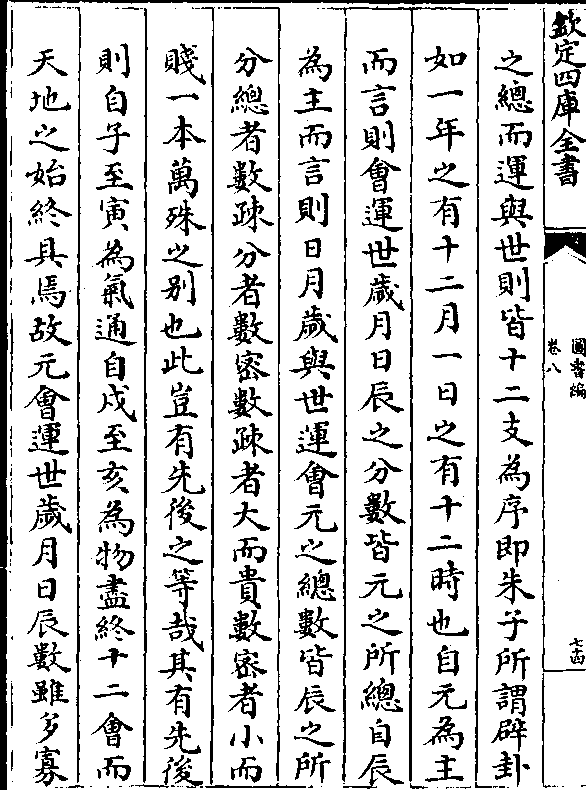 欽定四庫全書
圖書編
卷八
七十四
之總而運與世則皆十二支為序即朱子所謂辟卦
如一年之有十二月一日之有十二時也自元為主
而言則會運世歲月日辰之分數皆元之所總自辰
為主而言則日月歲與世運會元之總數皆辰之所
分總者數疎分者數密數疎者大而貴數密者小而
賤一本萬殊之别也此豈有先後之等哉其有先後
則自子至寅為氣通自戍至亥為物盡終十二會而
天地之始終具焉故元會運世歲月日辰數雖多寡